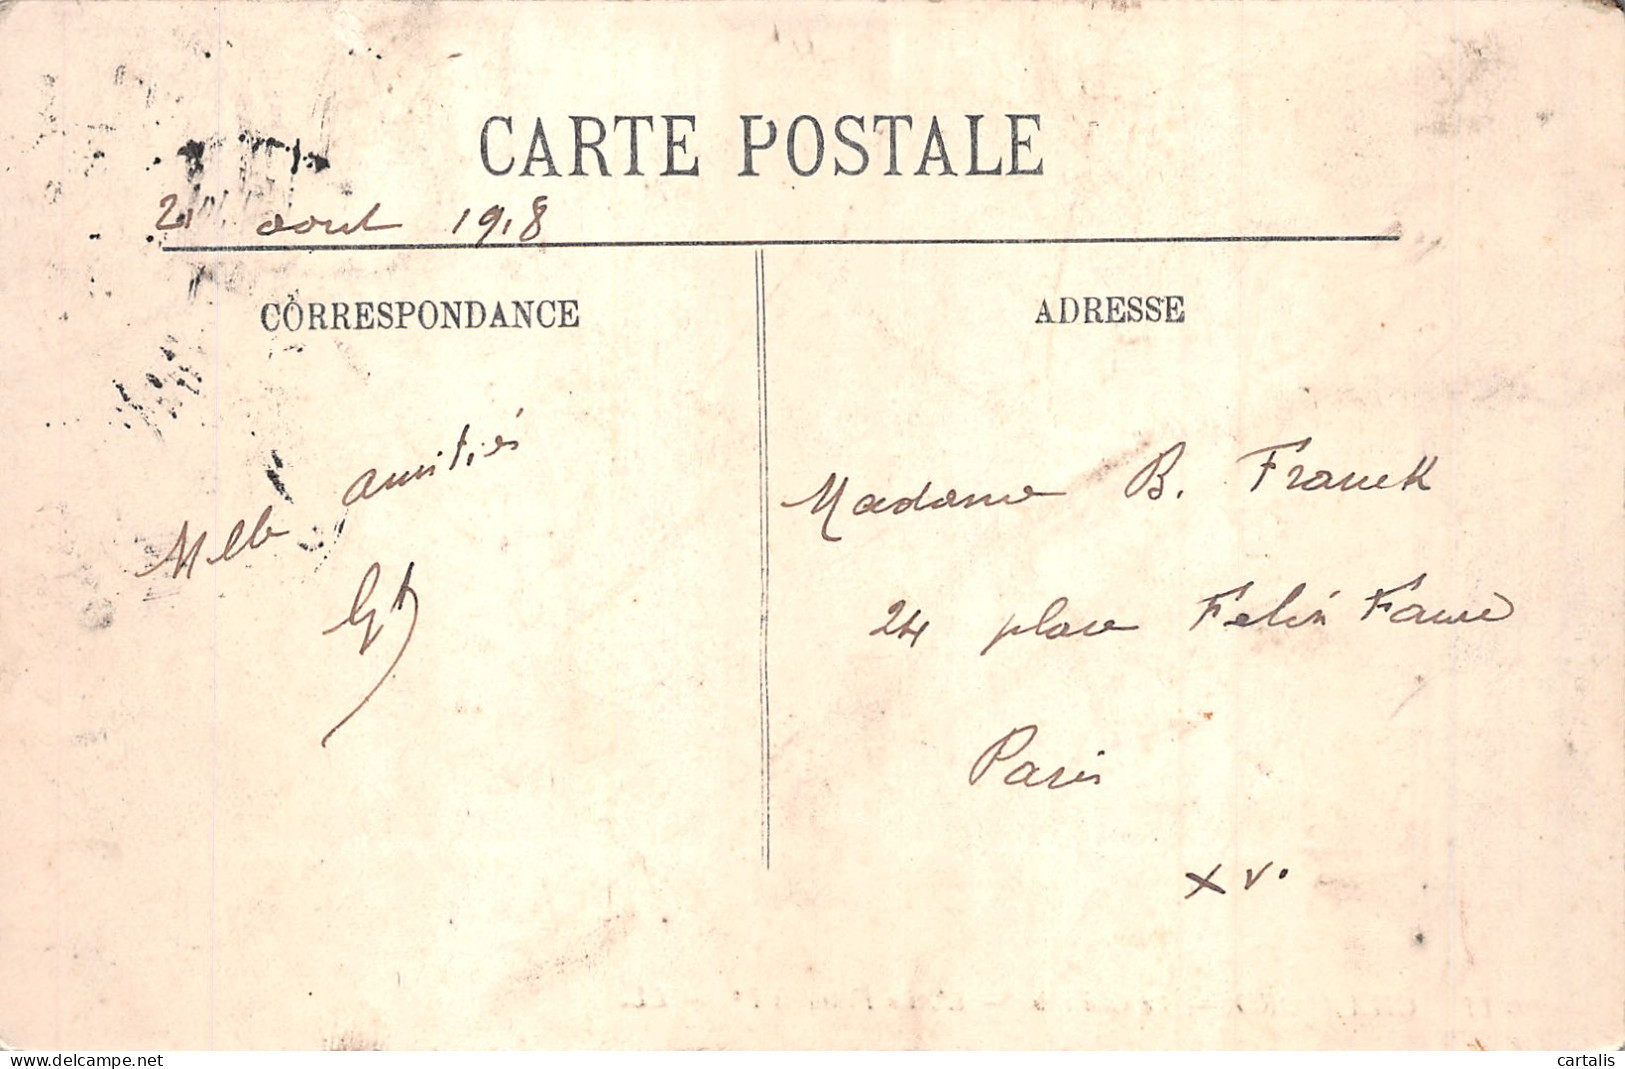 CARTE POSTALE
21 aout 1918
CORRESPONDANCE
ADRESSE
Mlle amitiés
Madame B. Franck
24 place Felix Faure
Paris
XV.
delcampe.net
cartalis